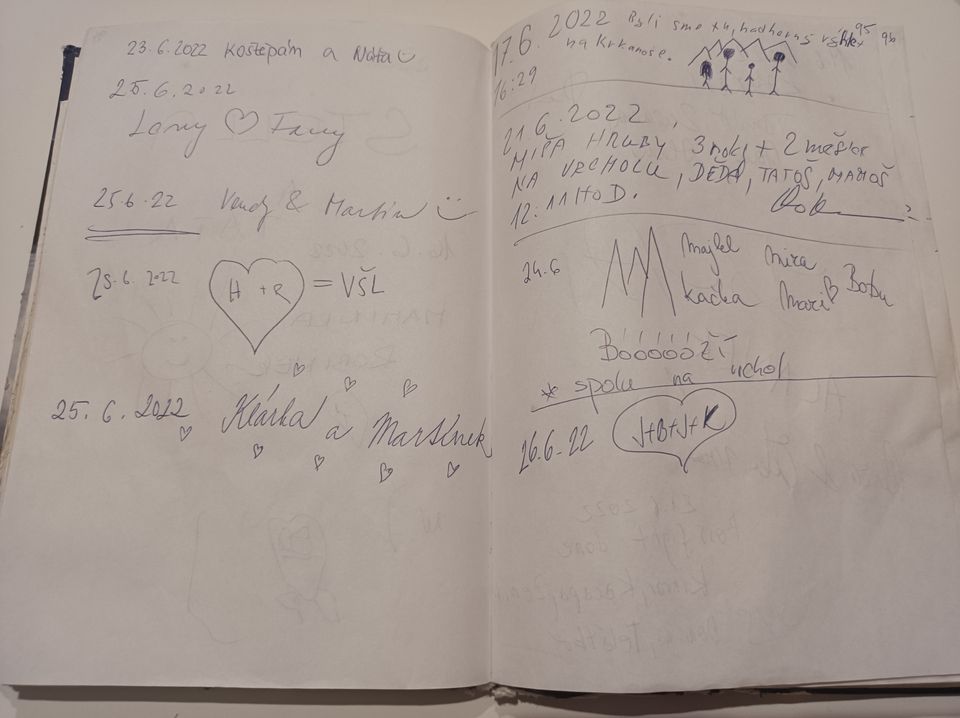 23.6.2022 Koštěpám a Nátta
25.6.2022
Lomy Fany
25.6.22 Vendy & Martin
25.6.2022 H + R = VŠL
25. 6. 2022 Klárka a Martínek
17.6.2022 Byli sme tu, nádherný
na Krkonoše.
16:29
21.6.2022,
MÍŠA HRUBÝ 3 roky + 2 měsíce
NA VRCHOLU, DĚDA, TATOŠ, MAMOŠ
12:11 HOD.
24.6 Majkl Míra Bobu
Kačka Mari
Bóóóóóóží
* spolu na vrchol
26.6.22 J+B+J+K